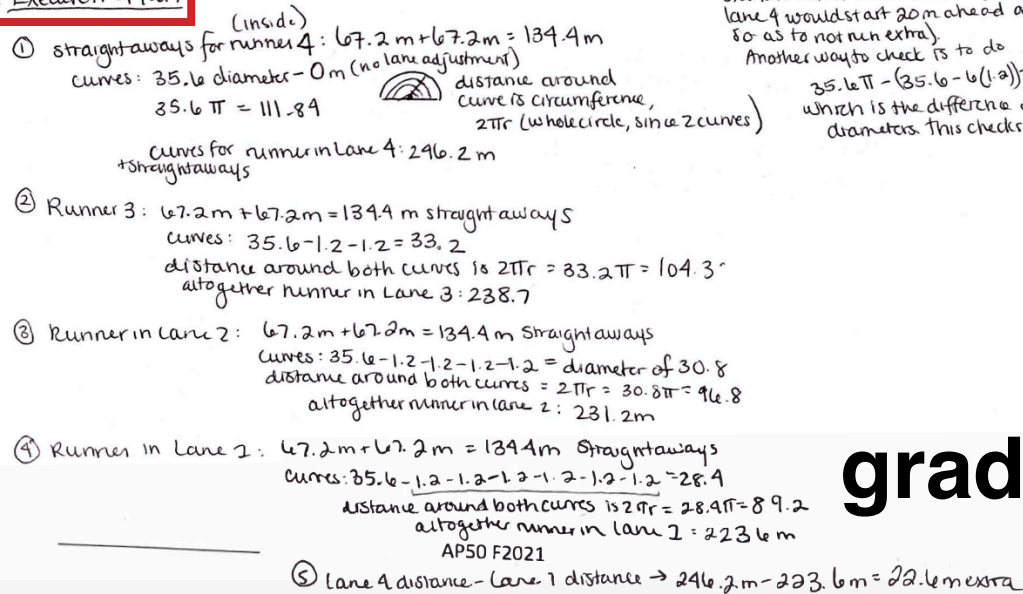 (inside)
① straightaways for runner 4: 67.2 m + 67.2m = 134.4m
curves: 35.6 diameter - 0m (no lane adjustment)
35.6 π = 111.84
distance around
curve is circumference,
2πr (whole circle, since 2 curves)
curves for runner in Lane 4: 246.2 m
+straightaways
lane 4 would start 20m ahead
so as to not run extra).
Another way to check is to do
35.6π - (35.6 - 6(1.2))
which is the difference
diameters. This checks
② Runner 3: 67.2m + 67.2m = 134.4 m straight aways
curves: 35.6 - 1.2 - 1.2 = 33.2
distance around both curves is 2πr = 33.2π = 104.3
altogether runner in Lane 3: 238.7
③ Runner in lane 2: 67.2m + 67.2m = 134.4 m Straightaways
curves: 35.6 - 1.2 - 1.2 - 1.2 - 1.2 = diameter of 30.8
distance around both curves = 2πr = 30.8π = 96.8
altogether runner in lane 2: 231.2m
④ Runner in Lane 1: 67.2m + 67.2m = 134.4m Straightaways
curves: 35.6 - 1.2 - 1.2 - 1.2 - 1.2 - 1.2 - 1.2 = 28.4
distance around both curves is 2πr = 28.4π = 89.2
altogether runner in lane 1: 223.6 m
grad
AP50 F2021
⑤ Lane 4 distance - Lane 1 distance → 246.2m - 223.6m = 22.6m extra